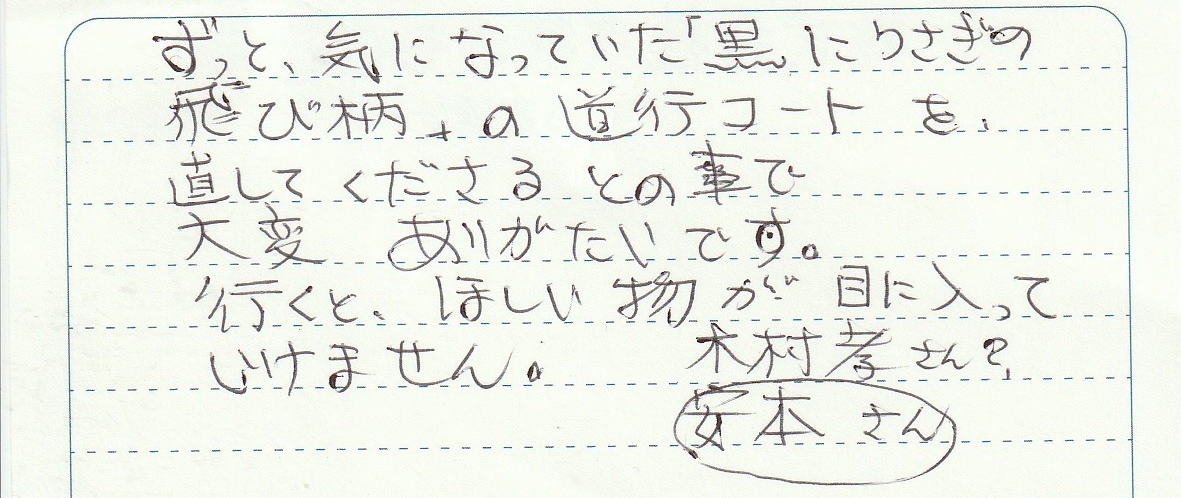 ずっと、気になっていた「黒にうさぎの
飛び柄」の道行コートを、
直してくださるとの事で
大変 ありがたいです。
行くと、ほしい物が目に入って
いけません。
木村孝さん?
安本さん